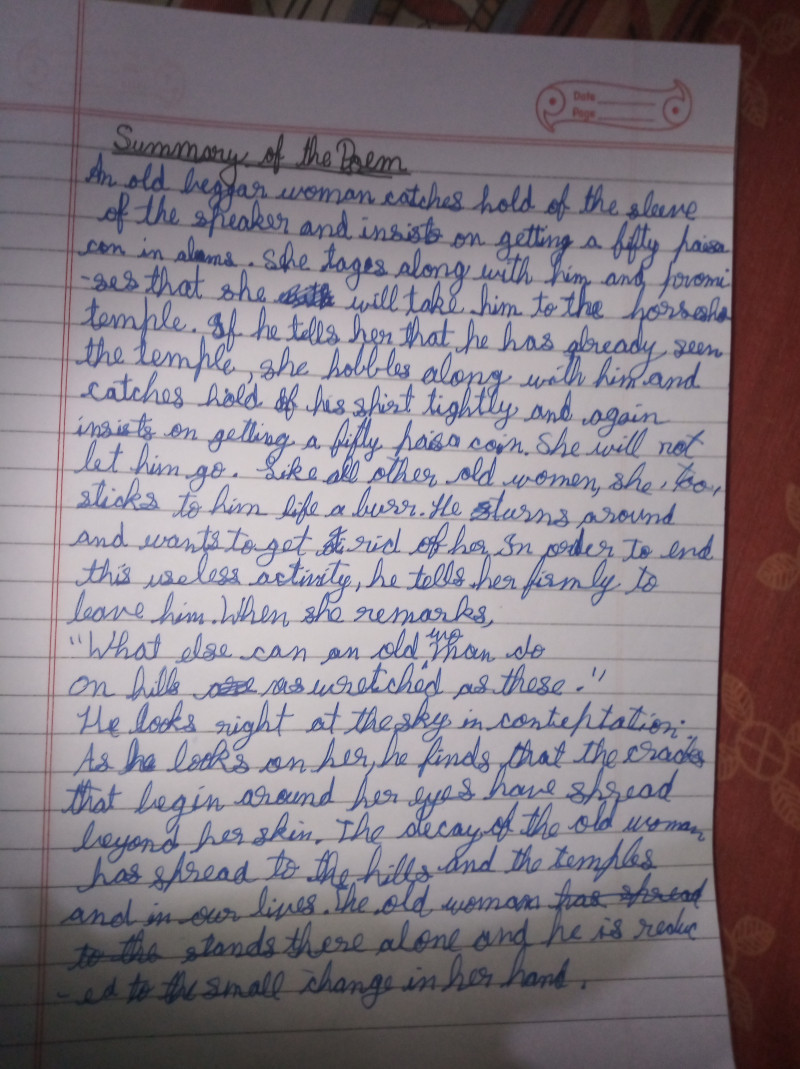 Date
Page
Summary of the Poem
An old beggar woman catches hold of the sleeve
of the speaker and insists on getting a fifty paisa
con in alams. She tages along with him and promi
-ses that she will take him to the horsesho
temple. If he tells her that he has already seen
the temple, she hobbles along with him and
catches hold of his shirt tightly and again
insists on getting a fifty paisa coin. She will not
let him go. Like all other old women, she, too,
sticks to him life a burr. He turns around
and wants to get rid of her. In order to end
this useless activity, he tells her firmly to
leave him. When she remarks,
"What else can an old woman do
on hills as wretched as these."
He looks right at the sky in
As he looks on her, he finds that the cracks
that begin around her eyes have spread
beyond her skin. The decay of the old woman
has spread to the hills and the temples
and in our lives. The old woman has spread
to the stands there alone and he is reduc
-ed to the small change in her hand.